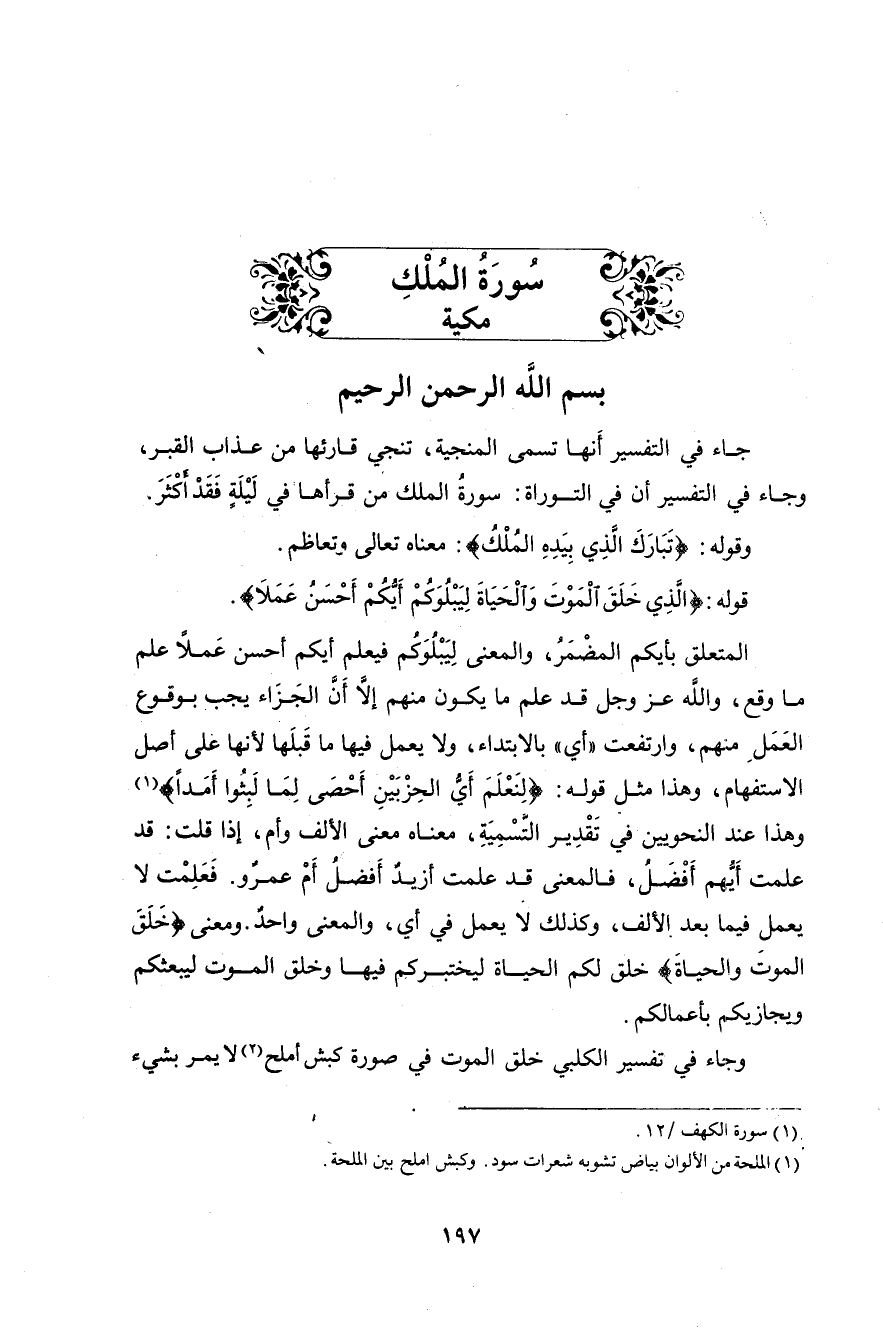 سُورَةُ المُلْكِ
مكية
بسم اللَّه الرحمن الرحيم
جـاء في التفسير أَنهـا تسمى المنجية، تنجي قـارئها من عـذاب القبـر،
وجـاء في التفسير أن في التـوراة: سورةُ الملك من قـرأهـا في لَيْلَةٍ فَقَدْ أَكْثَرَ.
وقوله: ﴿تَبَارَكَ الَّذِي بِيَدِهِ المُلْكُ﴾: معناه تعالى وتعاظم.
قوله: ﴿الَّذِي خَلَقَ ٱلْمَوْتَ وَٱلْحَيَاةَ لِيَبْلُوَكُمْ أَيُّكُمْ أَحْسَنُ عَمَلًا﴾.
المتعلق بأيكم المضْمَرُ، والمعنى لِيَبْلُوَكُم فيعلم أيكم أحسن عَمـلاً علم
مـا وقع، واللَّه عـز وجل قـد علم ما يكـون منهم إلَّا أَنَّ الجَـزَاء يجب بـوقـوع
العَمَلِ منهم، وارتفعت «أي» بالابتداء، ولا يعمل فيها ما قَبلَها لأنها على أصل
الاستفهام، وهذا مثـل قولـه: ﴿لِنَعْلَمَ أَيُّ الحِزْبَيْنِ أَحْصَى لِمَـا لَبِثُوا أَمَـداً﴾(١)
وهذا عند النحويين في تَقْدِيـرِ التَّسْمِيَةِ، معنـاه معنى الألف وأم، إذا قلت: قد
علمت أَيُّهم أَفْضَـلُ، فـالمعنى قـد علمت أزيـدٌ أَفضـلُ أَمْ عمـرٌو. فَعَلِمْت لا
يعمل فيما بعد الألف، وكذلك لا يعمل في أي، والمعنى واحدٌ. ومعنى ﴿خَلَقَ
الموتَ والحيـاةَ﴾ خلق لكم الحيـاة ليختبـركم فيهـا وخلق المـوت ليبعثكم
ويجازيكم بأعمالكم.
وجاء في تفسير الكلبي خلق الموت في صورة كبش أملح(٢) لا يمـر بشيء
(١) سورة الكهف /١٢.
(١) الملحة من الألوان بياض تشوبه شعرات سود. وكبش املح بين الملحة.
١٩٧